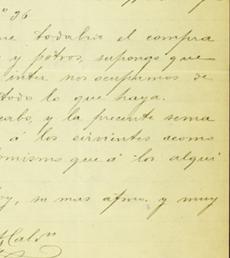 96
ue todabia el compra
y potros, supongo que
inter nos ocupamos de
todo lo que haya.
cabo, y la presente sema
á los sirvientes acomo
lomismo que á los alqui
oy, su mas afmo. y muy